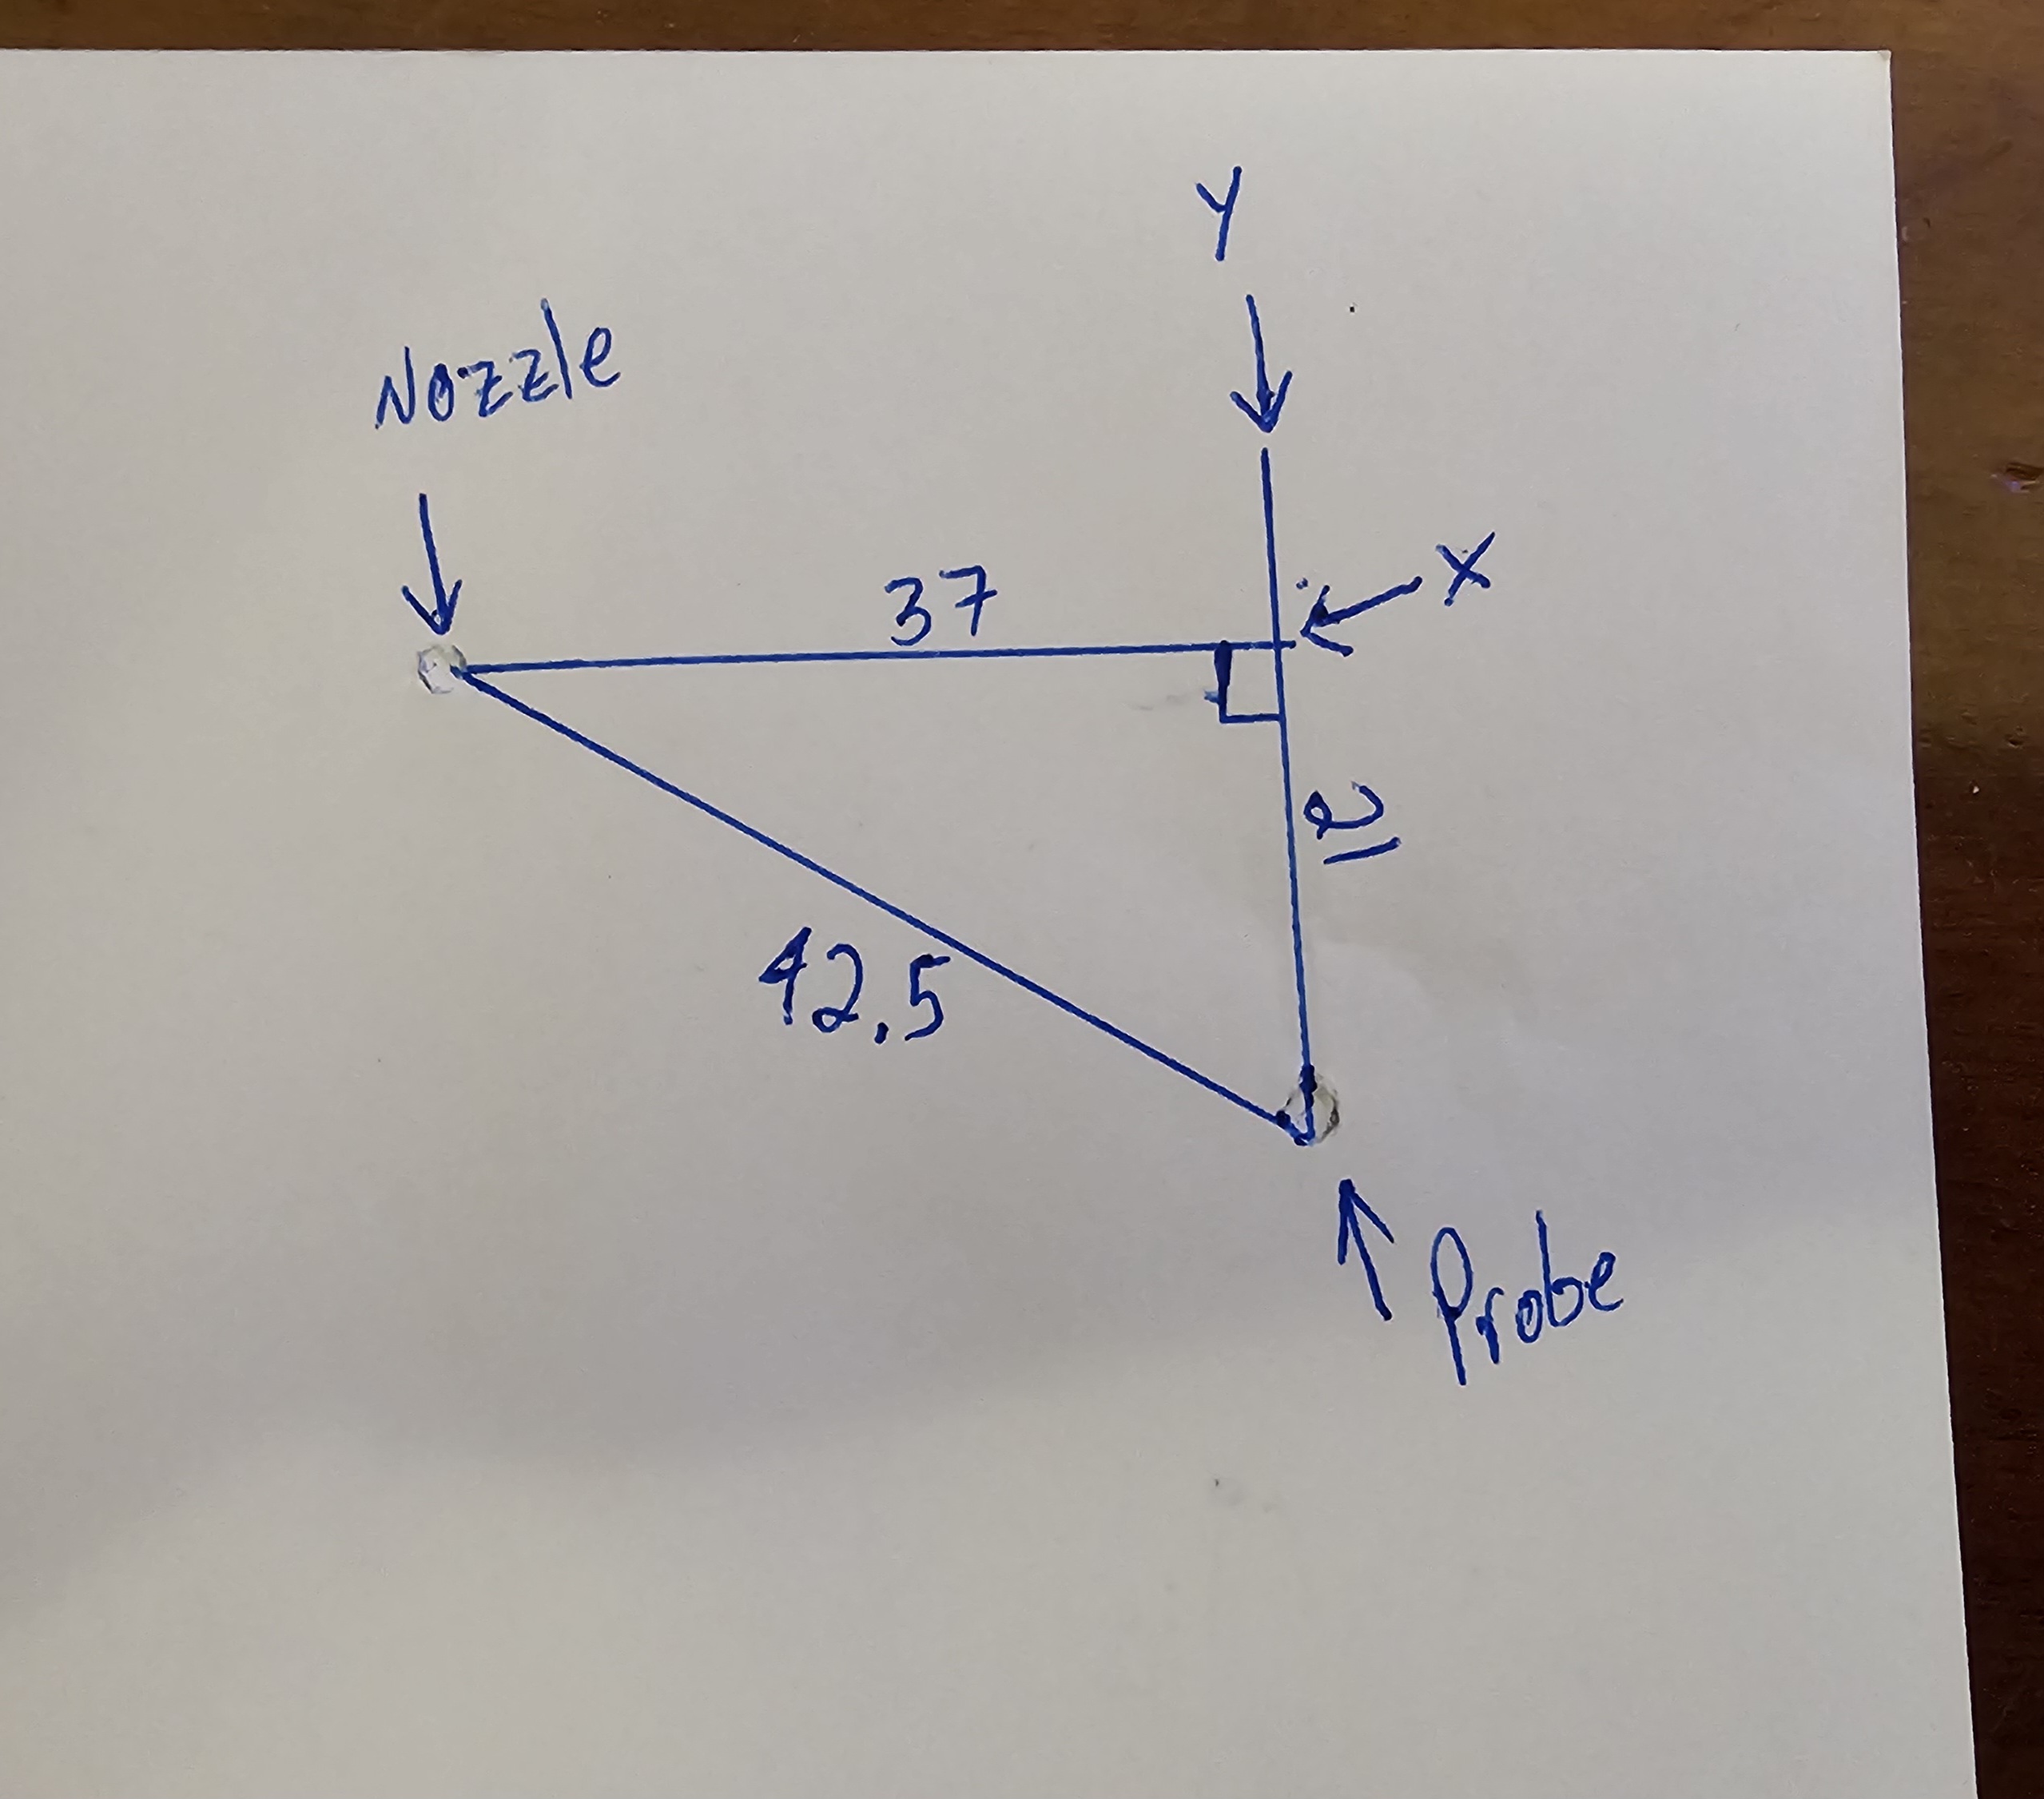 Y
Nozzle
X
37
21
42,5
Probe